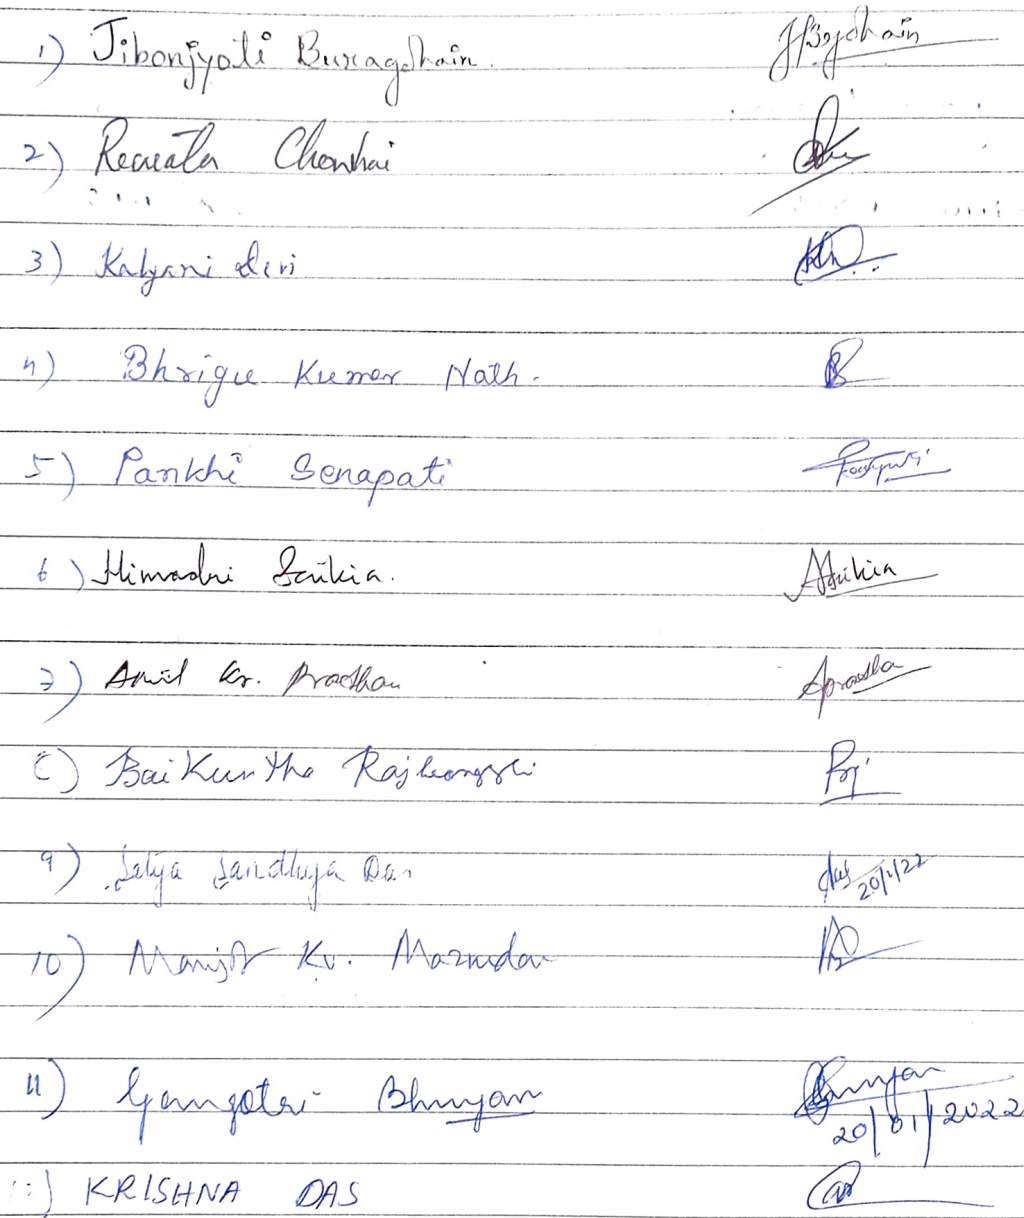 1) Jibonjyoti Buragohain. JBgohain
2) Chenhai
3) Kalyani Devi
4) Bhrigu Kumar Nath.
5) Pankhi Senapati
6) Himadri Saikia. Saikia
7) Kr. Pradhan
8) Baikuntha Rajbongshi
9) Satya Sandhya Das das 20/1/22
10) Kr. Mazumdar
11) Gangotri Bhuyan Bhuyan
20/01/2022
KRISHNA DAS